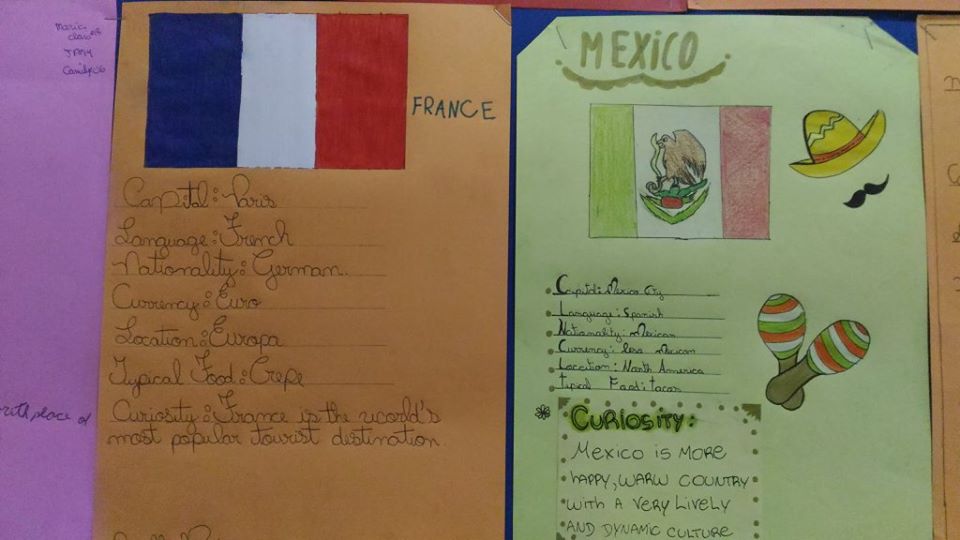 FRANCE
Capital: Paris
Language: French
Nationality: German
Currency: Euro
Location: Europa
Typical Food: Crepe
Curiosity: France is the world's
most popular tourist destination
place of
MEXICO
Capital: Mexico City
Language: Spanish
Nationality: mexican
Currency: Peso mexican
Location: North America
Tipical Food: tacos
CURIOSITY:
MEXICO IS MORE
HAPPY, WARW COUNTRY
WITH A VERY LIVELY
AND DYNAMIC CULTURE